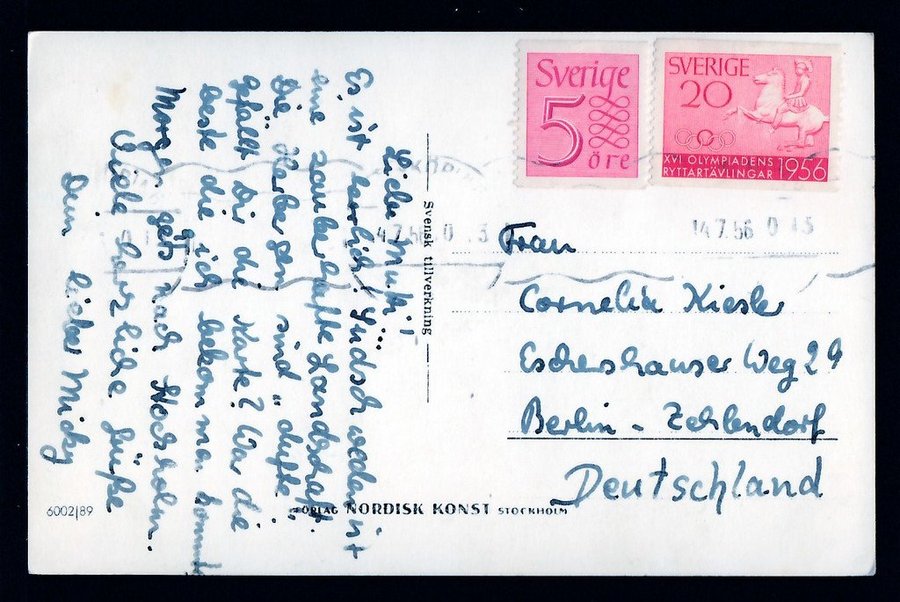 Liebe Mutti!
Es ist herrlich! Südschweden ist
eine zauberhafte Landschaft.
Die Herbergen sind „dufte".
Gefällt Dir die Karte? War die
beste die ich bekommen konnt
Morgen geht's nach Stockholm.
Viele herzliche Grüße
Dein lieber Micky
Svensk tillverkning
6002/89
FÖRLAG NORDISK KONST STOCKHOLM
Sverige
5
öre
SVERIGE
20
XVI OLYMPIADENS
RYTTARTÄVLINGAR 1956
14.7.56
Frau
Cornelia Kiesler
Eschershauser Weg 29
Berlin - Zehlendorf
Deutschland